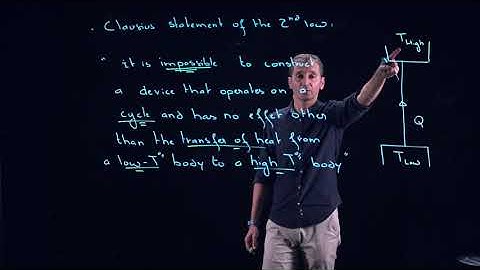 . Clausius statement of the 2nd law.
" it is impossible to construct
a device that operates on a
cycle and has no effect other
than the transfer of heat from
a low-T° body to a high T° body"
THigh
Q
TLow